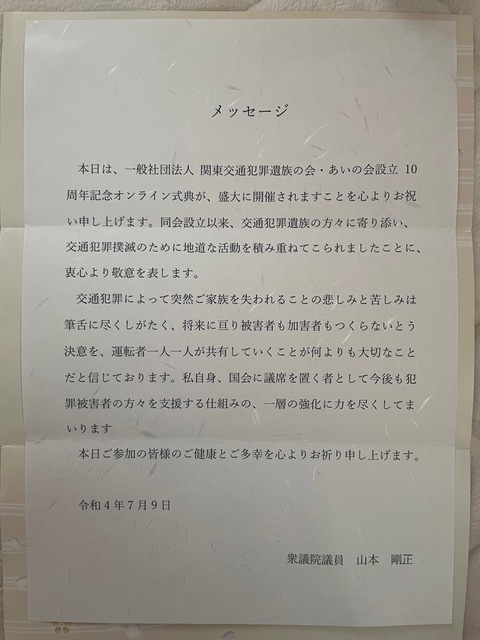 メッセージ
本日は、一般社団法人 関東交通犯罪遺族の会・あいの会設立 10
周年記念オンライン式典が、盛大に開催されますことを心よりお祝
い申し上げます。同会設立以来、交通犯罪遺族の方々に寄り添い、
交通犯罪撲滅のために地道な活動を積み重ねてこられましたことに、
衷心より敬意を表します。
交通犯罪によって突然ご家族を失われることの悲しみと苦しみは
筆舌に尽くしがたく、将来に亘り被害者も加害者もつくらないとう
決意を、運転者一人一人が共有していくことが何よりも大切なこと
だと信じております。私自身、国会に議席を置く者として今後も犯
罪被害者の方々を支援する仕組みの、一層の強化に力を尽くしてま
いります
本日ご参加の皆様のご健康とご多幸を心よりお祈り申し上げます。
令和４年７月９日
衆議院議員 山本 剛正